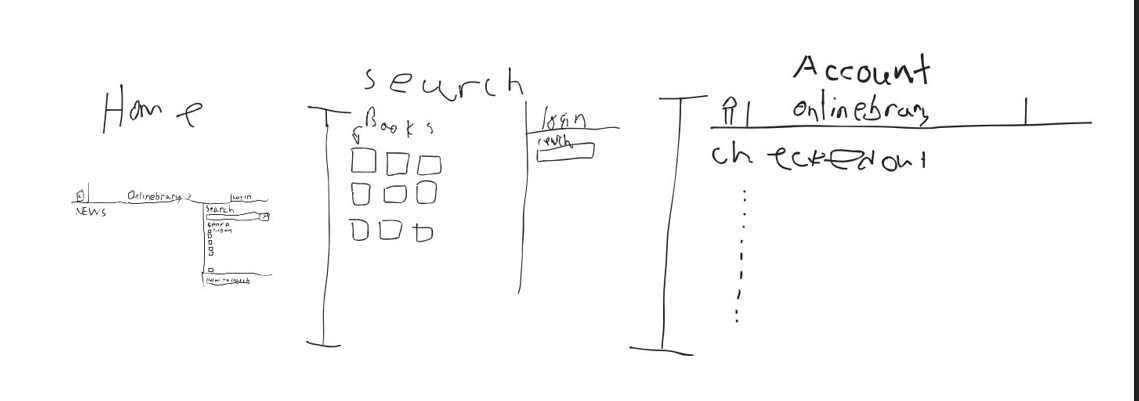 Home
Onlinebrary
Login
NEWS
Search
search
Books
login
Account
onlinebrary
checkedout